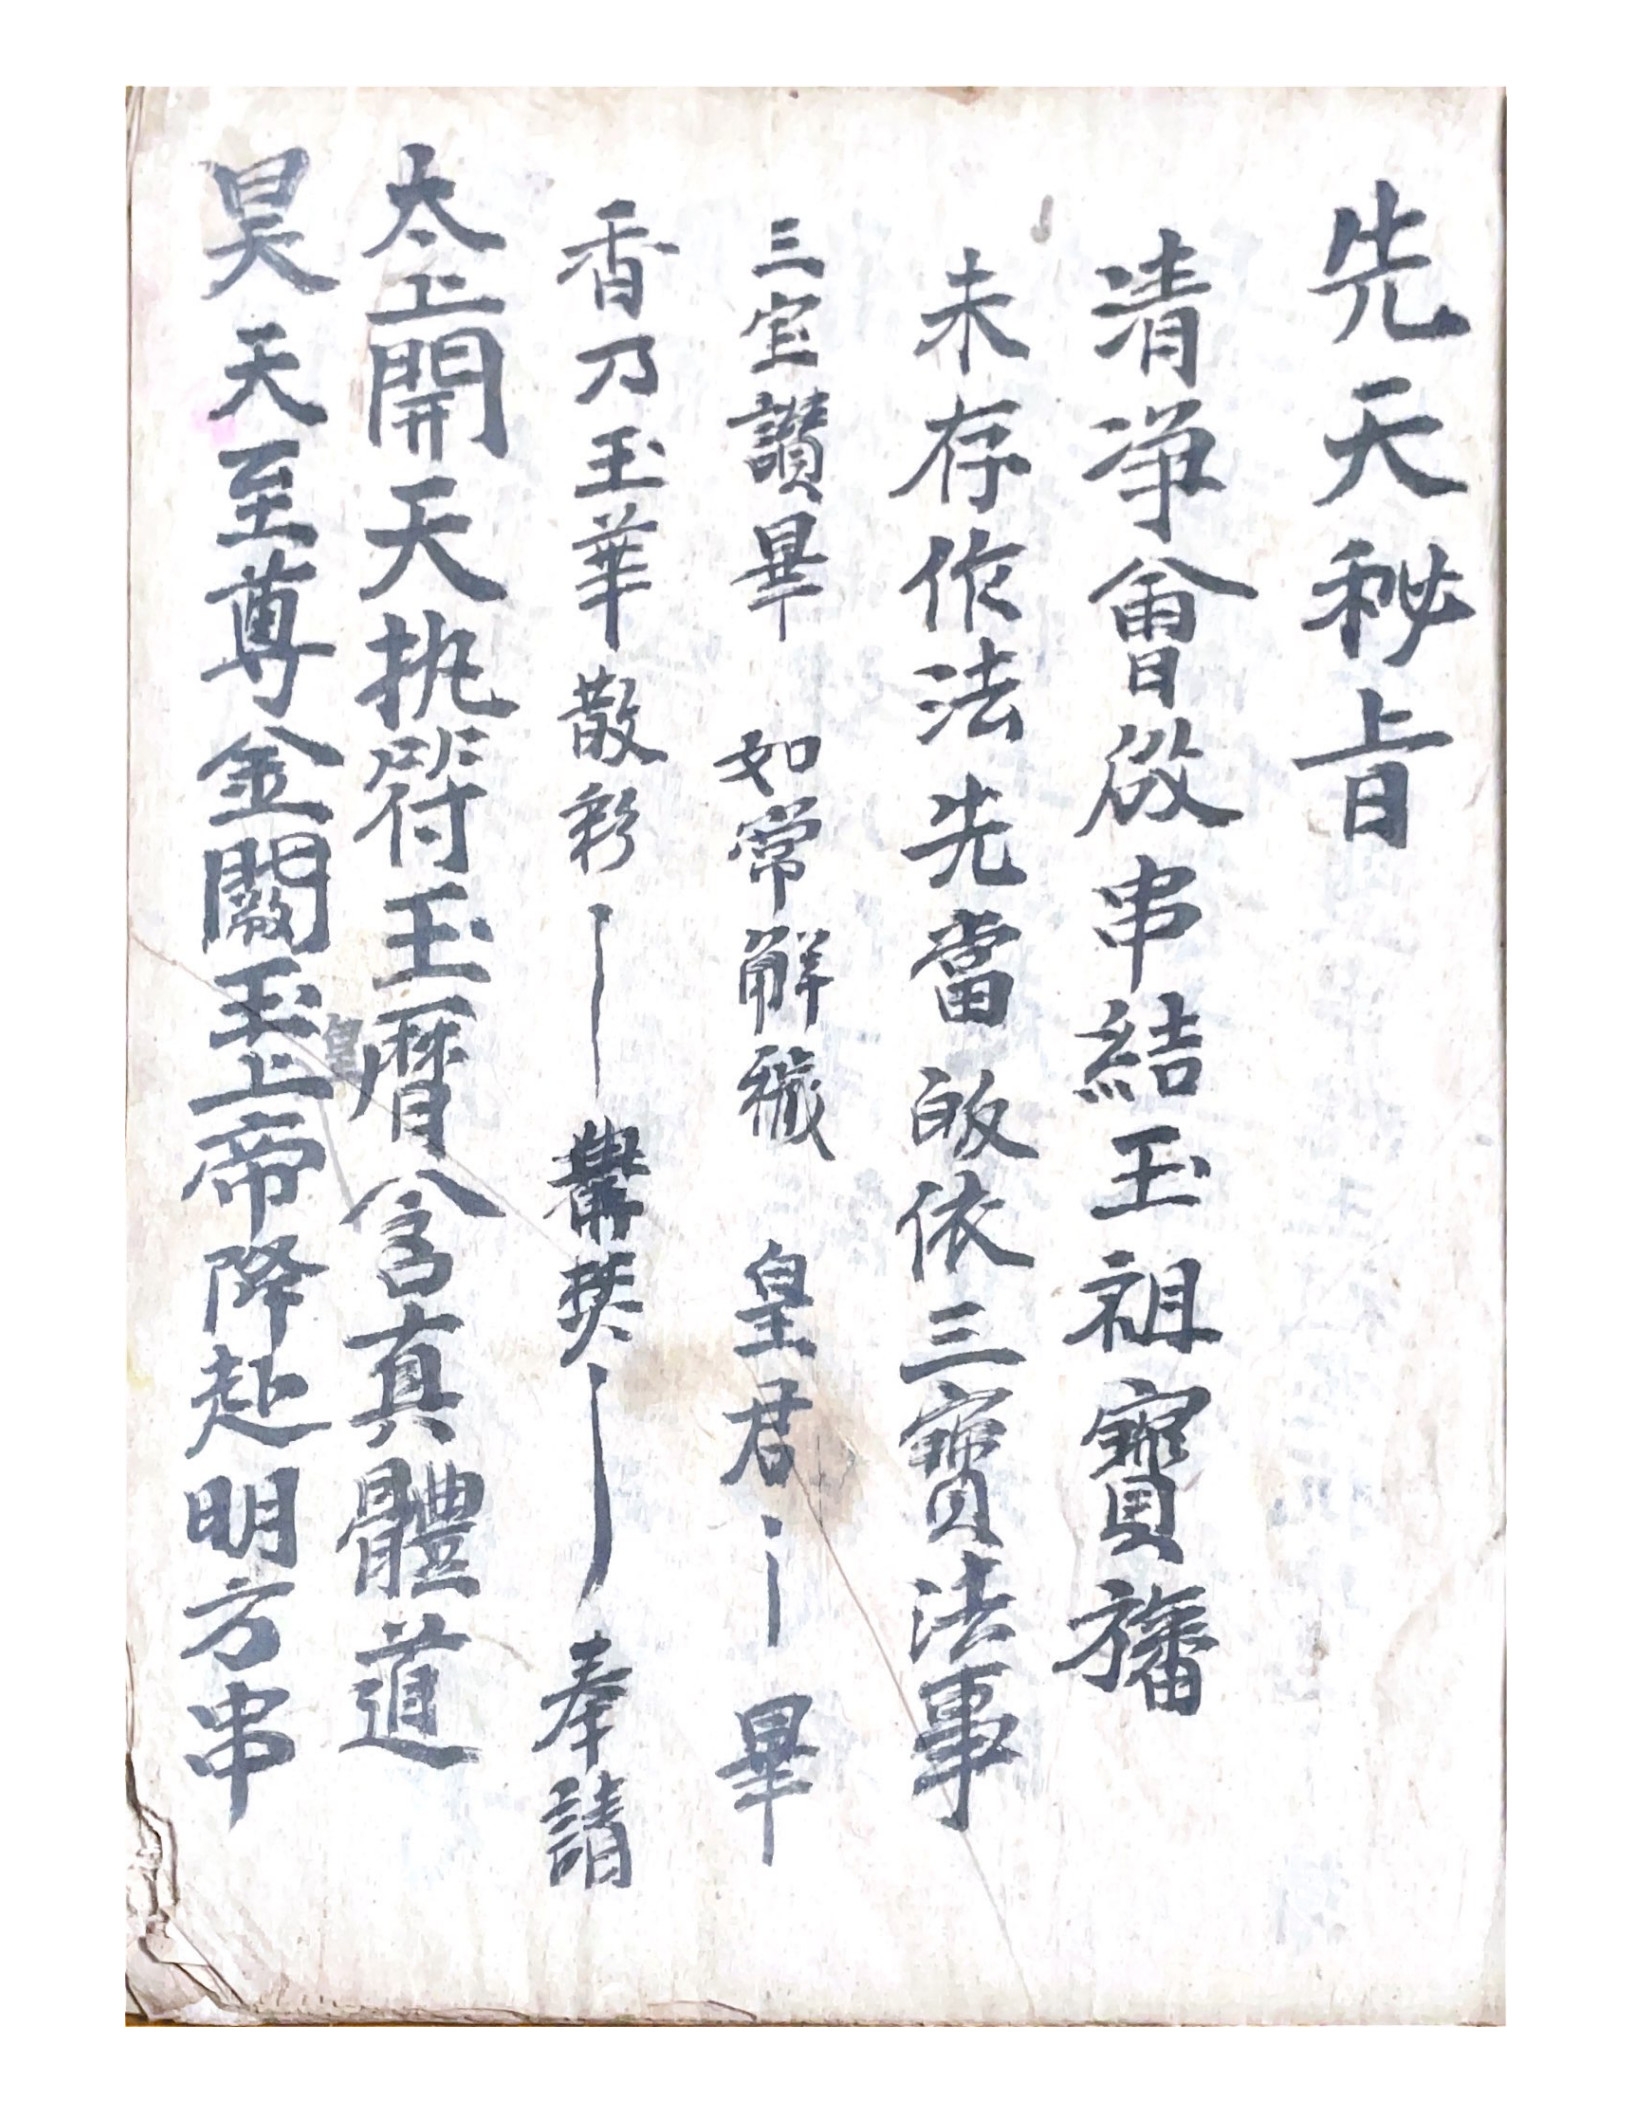 先天秘旨
清凈會啟串結玉祖寶旛
未存作法先當皈依三寶法事
三宝讚畢 如常解穢 皇君 畢
香乃玉華散彩 奉請
太上開天執符玉曆含真體道
昊天至尊金闕玉皇上帝降赴明方串